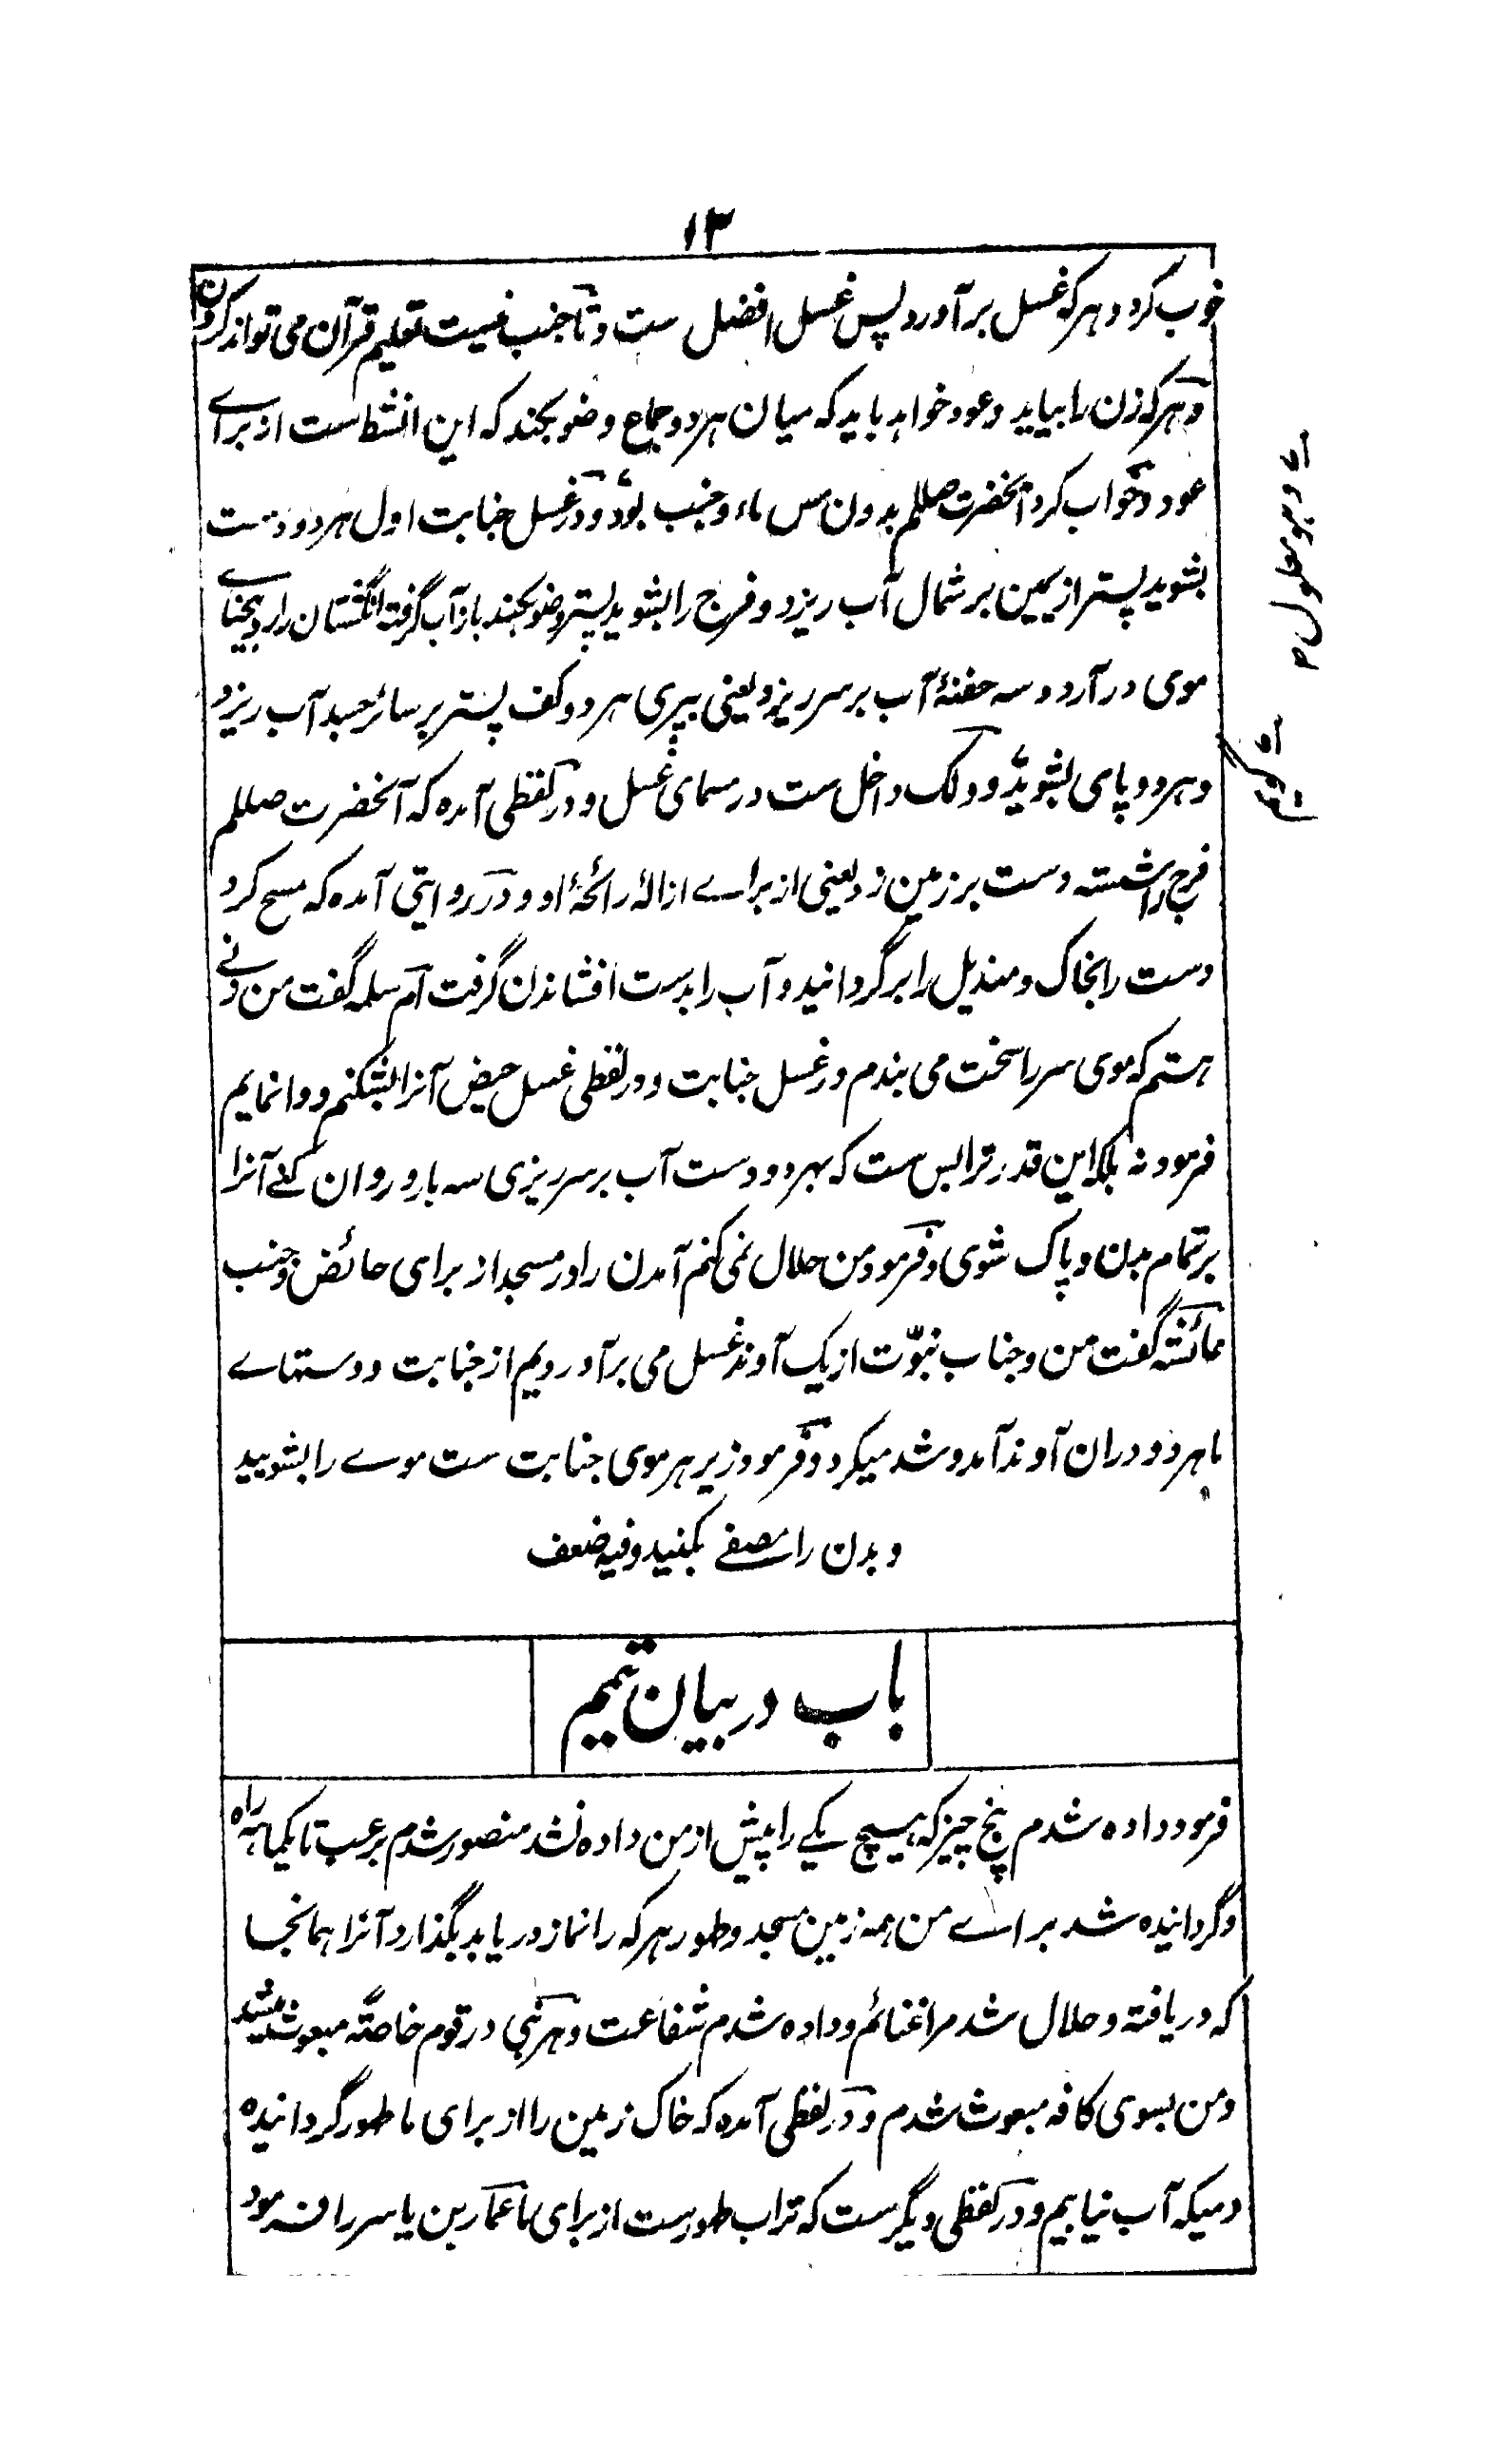 ۱۳
خوب کرد و هر که غسل برآورد پس غسل افضل ست و تا جنب نیست تعلیم قرآن می تواند کردن
و هر که زن را بیاید و عود خواهد باید که میان هر دو جماع وضو بکند که این انشط ست از برای
عود و خواب کرد آنحضرت صللم بدون مس ماء و جنب بود و در غسل جنابت اول هر دو دست
بشوید پستر از یمین بر شمال آب ریزد و فرج را بشوید پستر وضو بکند باز آب گرفته انگشتان را در بیخهای
موی در آرد و سه حفنهٔ آب بر سر ریزد یعنی بپری هر دو کف پستر بر سائر جسد آب ریزد
و هر دو پای بشوید و دلک داخل ست در مسمای غسل و در لفظی آمده که آنحضرت صللم
فرج را شسته دست بر زمین زد یعنی از برای ازالهٔ رائحهٔ او و در روایتی آمده که مسح کرد
دست را بخاک و مندیل را برگردانید و آب را بدست افشاندن گرفت ام سلمه گفت من زنی
هستم که موی سر را سخت می بندم در غسل جنابت و در لفظی غسل حیض آنرا بشکنم و وا نمایم
فرمود نه بلکه این قدر ترا بس ست که بهر دو دست آب بر سر ریزی سه بار و روان کنی آنرا
بر تمام بدن و پاک شوی و فرمود من حلال نمی کنم آمدن را در مسجد از برای حائض و جنب
عائشه گفت من و جناب نبوّت از یک آوند غسل می برآوردیم از جنابت و دستهای
ما هر دو دران آوند آمد و شد میکرد و فرمود زیر هر موی جنابت ست موی را بشویید
و بدن را مصفی بکنید و فیه ضعف
باب در بیان تیمم
فرمود داده شدم پنج چیز که هیچ یکی را پیش از من داده نشد منصور شدم برعب تا یکماهه راه
و گردانیده شد برای من همه زمین مسجد و طهور هر که را نماز دریابد بگذارد آنرا همانجا
که دریافته و حلال شد مرا غنائم و داده شدم شفاعت و هر نبی در قوم خاصّه مبعوث میشد
و من بسوی کافه مبعوث شدم و در لفظی آمده که خاک زمین را از برای ما طهور گردانیده
دمیکه آب نیابیم و در لفظی دیگرست که تراب طهورست از برای ما عمّار بن یاسر را فرمود
و هو معلول ۱۲